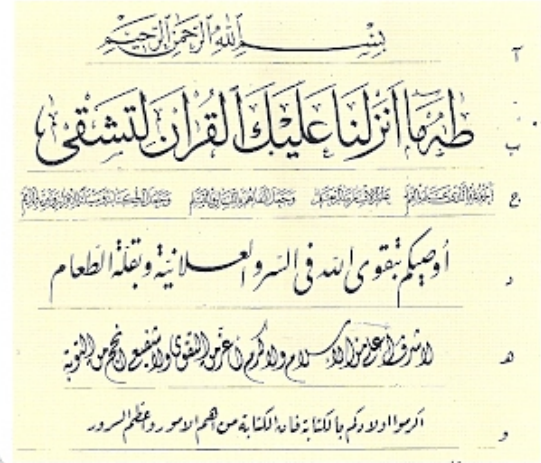 آ بسم الله الرحمن الرحيم
ب طه ما أنزلنا عليك القرآن لتشقى
ج
د أوصيكم بتقوى الله في السر والعلانية وبقلة الطعام
هـ لا شرف أعلى من الإسلام ولا كرم أعز من التقوى ولا شفيع أنجح من التوبة
و اكرموا اولادكم بالكتابة فان الكتابة من اهم الامور واعظم السرور